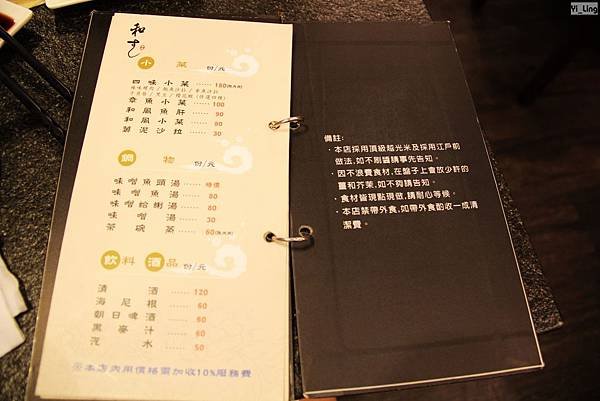 Yi_Ling
和す
小菜 份/元
四味小菜 ······ 180
章魚小菜 ······ 100
和風魚肝 ······ 90
和風小菜 ······ 90
薯泥沙拉 ······ 30
鍋物 份/元
味噌魚頭湯 ······ 時價
味噌魚湯 ······ 80
味噌蛤蜊湯 ······ 80
味噌湯 ······ 30
茶碗蒸 ······ 60
飲料 酒品 份/元
清酒 ······ 120
海尼根 ······ 60
朝日啤酒 ······ 60
黑麥汁 ······ 60
汽水 ······ 50
※本店內用價格需加收10%服務費
備註:
·本店採用頂級越光米及採用江戶前
做法,如不刷醬請事先告知。
·因不浪費食材,在盤子上會放少許的
薑和芥茉,如不夠請告知。
·食材皆現點現做,請耐心等候。
·本店禁帶外食,如帶外食酌收一成清
潔費。